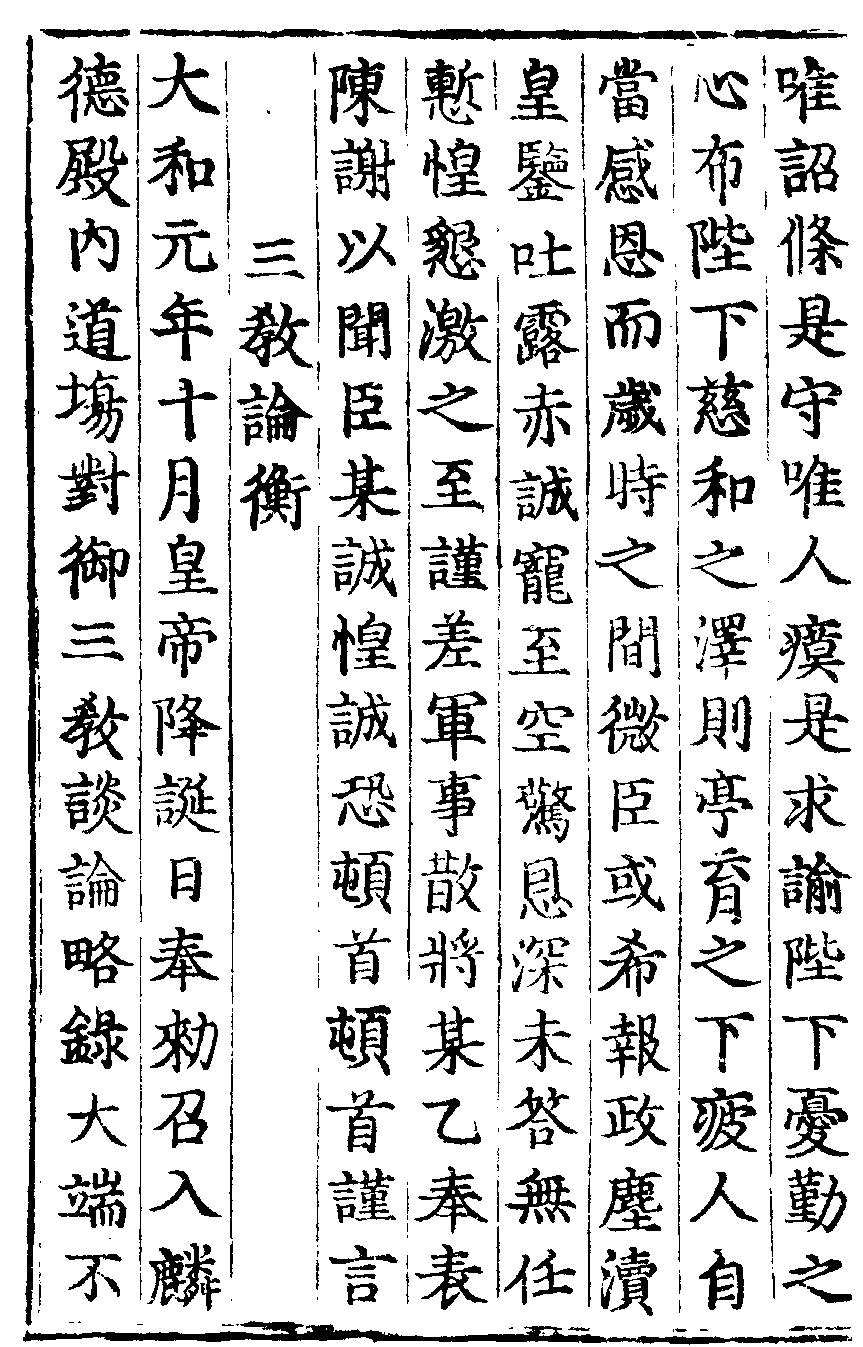 唯詔條是守唯人瘼是求諭陛下憂勤之
心布陛下慈和之澤則亭育之下疲人自
當感恩而歲時之間微臣或希報政塵瀆
皇鑒吐露赤誠寵至空驚恩深未答無任
慙惶懇激之至謹差軍事散將某乙奉表
陳謝以聞臣某誠惶誠恐頓首頓首謹言
三教論衡
大和元年十月皇帝降誕日奉勑召入麟
德殿內道場對御三教談論略錄大端不